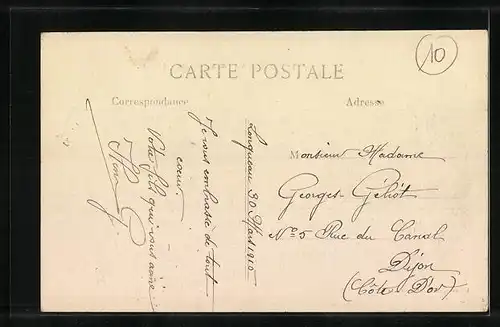 10
CARTE POSTALE
Correspondance
Adresse
Longueau 30 Mars 1910
Je vous embrasse de tout
coeur.
Votre fils qui vous aime
Monsieur Madame
Georges Géliot
No 5 Rue du Canal
Dijon
(Côte D'or)